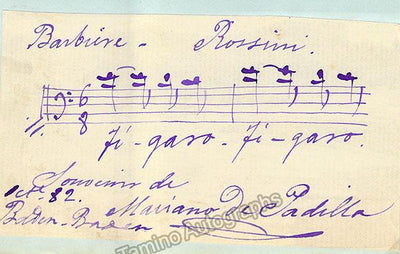 Barbiere - Rossini.
6
8
Fi - garo - Fi - garo.
Souvenir de
Oct. 82.
Baden-Baden Mariano De Padilla
Tamino Autographs